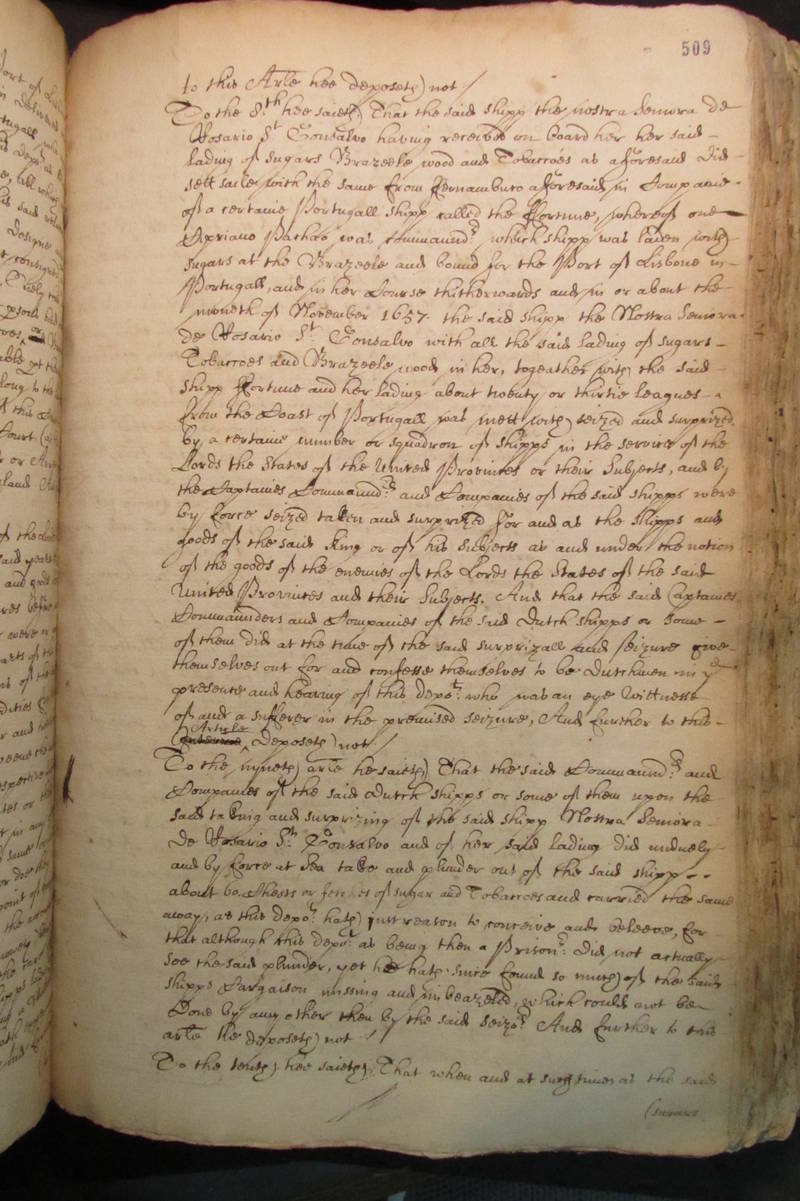 509
to this Arle hee deposeth not /
To the 8.th hee saieth That the said shipp the nostra Semora de
Rosario St Gonsalvo having received on board her her said
lading of sugars Brazeele wood and Tobaccoes as aforesaid did
sett saile with the same from Fernambuco aforesaid in Companie
of a certaine Portugall shipp called the Fortune, whereof one
Cipriano Pachao was command.r which shipp was laden with
sugars at the Brazeele and bound for the Port of Lisbone in
Portugall, and in her Course thitherwards and in or about the
moneth of November 1657. the said shipp the Nostra Semora
de Rosario St. Gonsalvo with all the said lading of sugars
Tobaccoes and Brazeele wood in her, togeather with the said
shipp Fortune and her lading about twenty or thirtie leagues
from the Coast of Portugall was mett with seized and surprized
by a certaine number or squadron of shipps in the service of the
Lords the States of the United Provinces or their Subjects, and by
the Captaines Command.rs and Companies of the said shipps were
by force seized taken and surprized for and as the shipps and
goods of the said King or of his Subjects as and under the notion
of the goods of the enemies of the Lords the States of the said
United Provinces and their Subjects. And that the said Captaines
Commaunders and Companies of the said Dutch shipps or some
of them did at the time of the said surprizall and seizure give
themselves out for and confesse themselves to be Dutchmen in ye
presence and hearing of this depot. who was an eye Wittnesse
of and a sufferer in the premised seizure, And further to this
Article
Deposeth not /
To the nyneth arle he saieth That the said Command.rs and
Companies of the said Dutch shipps or some of them upon the
said taking and surprizing of the said shipp Nostra Semora
de Rosario St. Gonsalvo and of her said lading did unduely
and by force at Sea take and plunder out of the said shipp
about 60. Chests or fetches of sugar and Tobaccoes and carried the same
away, as this depot. hath just reason to conceive and beleeve, for
that although this depot. as being then a Prison.r did not actually
see the said plunder, yet he hath since found so much of the said
shipps Cargaison missing and imbeazeled, which could not be
done by any other then by the said seizo.rs And further to this
arle he deposeth not /
To the tenth hee saieth, That when and at such time as the said